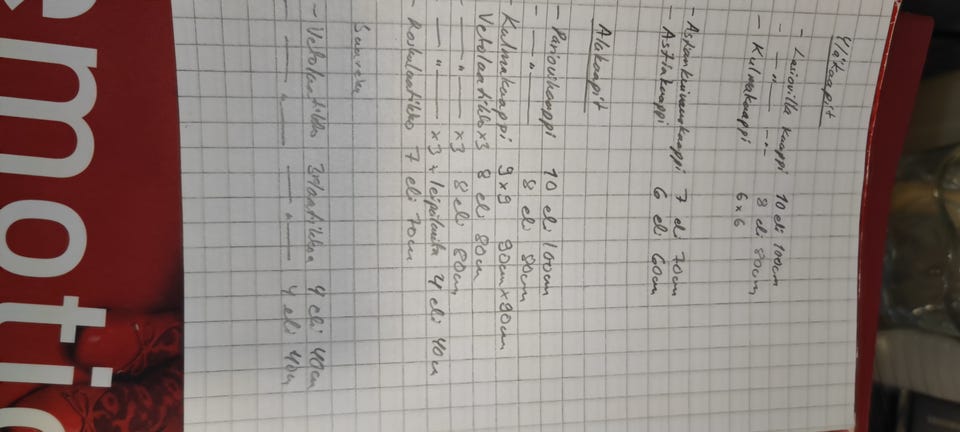 Yläkaapit
- Lasiovilla kaappi 10 eli 100cm
- —"— —"— 8 eli 80cm
- Kulmakaappi 6x6
- Astiankuivauskaappi 7 eli 70cm
- Astiakaappi 6 eli 60cm
Alakaapit
- Pariovikaappi 10 eli 100cm
- —"— 8 eli 80cm
- Kulmakaappi 9x9 90cmx90cm
Vetolaatikko x3 8 eli 80cm
- —"— x3 8 eli 80cm
- —"— x3 + leipälauta 4 eli 40cm
- Roskalaatikko 7 eli 70cm
Saareke
- Vetolaatikko 3 laatikkoa 4 eli 40cm
- —"— —"— 4 eli 40cm
emotio